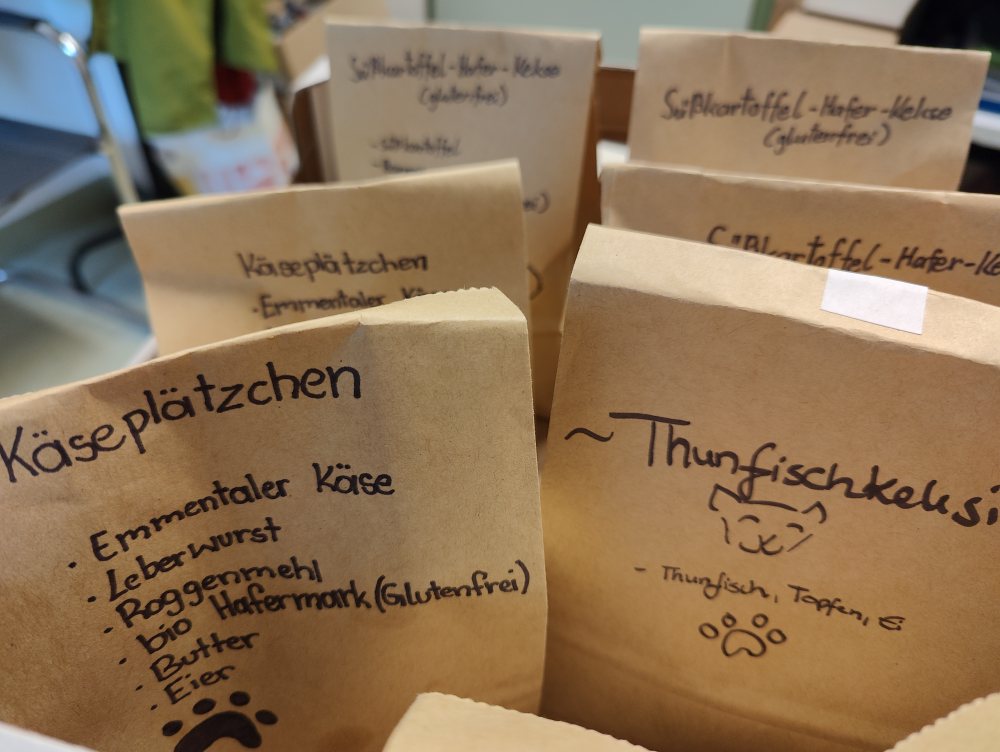 Süßkartoffel-Hafer-Kekse
(glutenfrei)
- süßkartoffel
Süßkartoffel-Hafer-Kekse
(glutenfrei)
Käseplätzchen
- Emmentaler
Süßkartoffel-Hafer-Ke
Käseplätzchen
· Emmentaler Käse
· Leberwurst
· Roggenmehl
· bio Hafermark (Glutenfrei)
· Butter
· Eier
~ Thunfischkeksi
- Thunfisch, Topfen, Ei